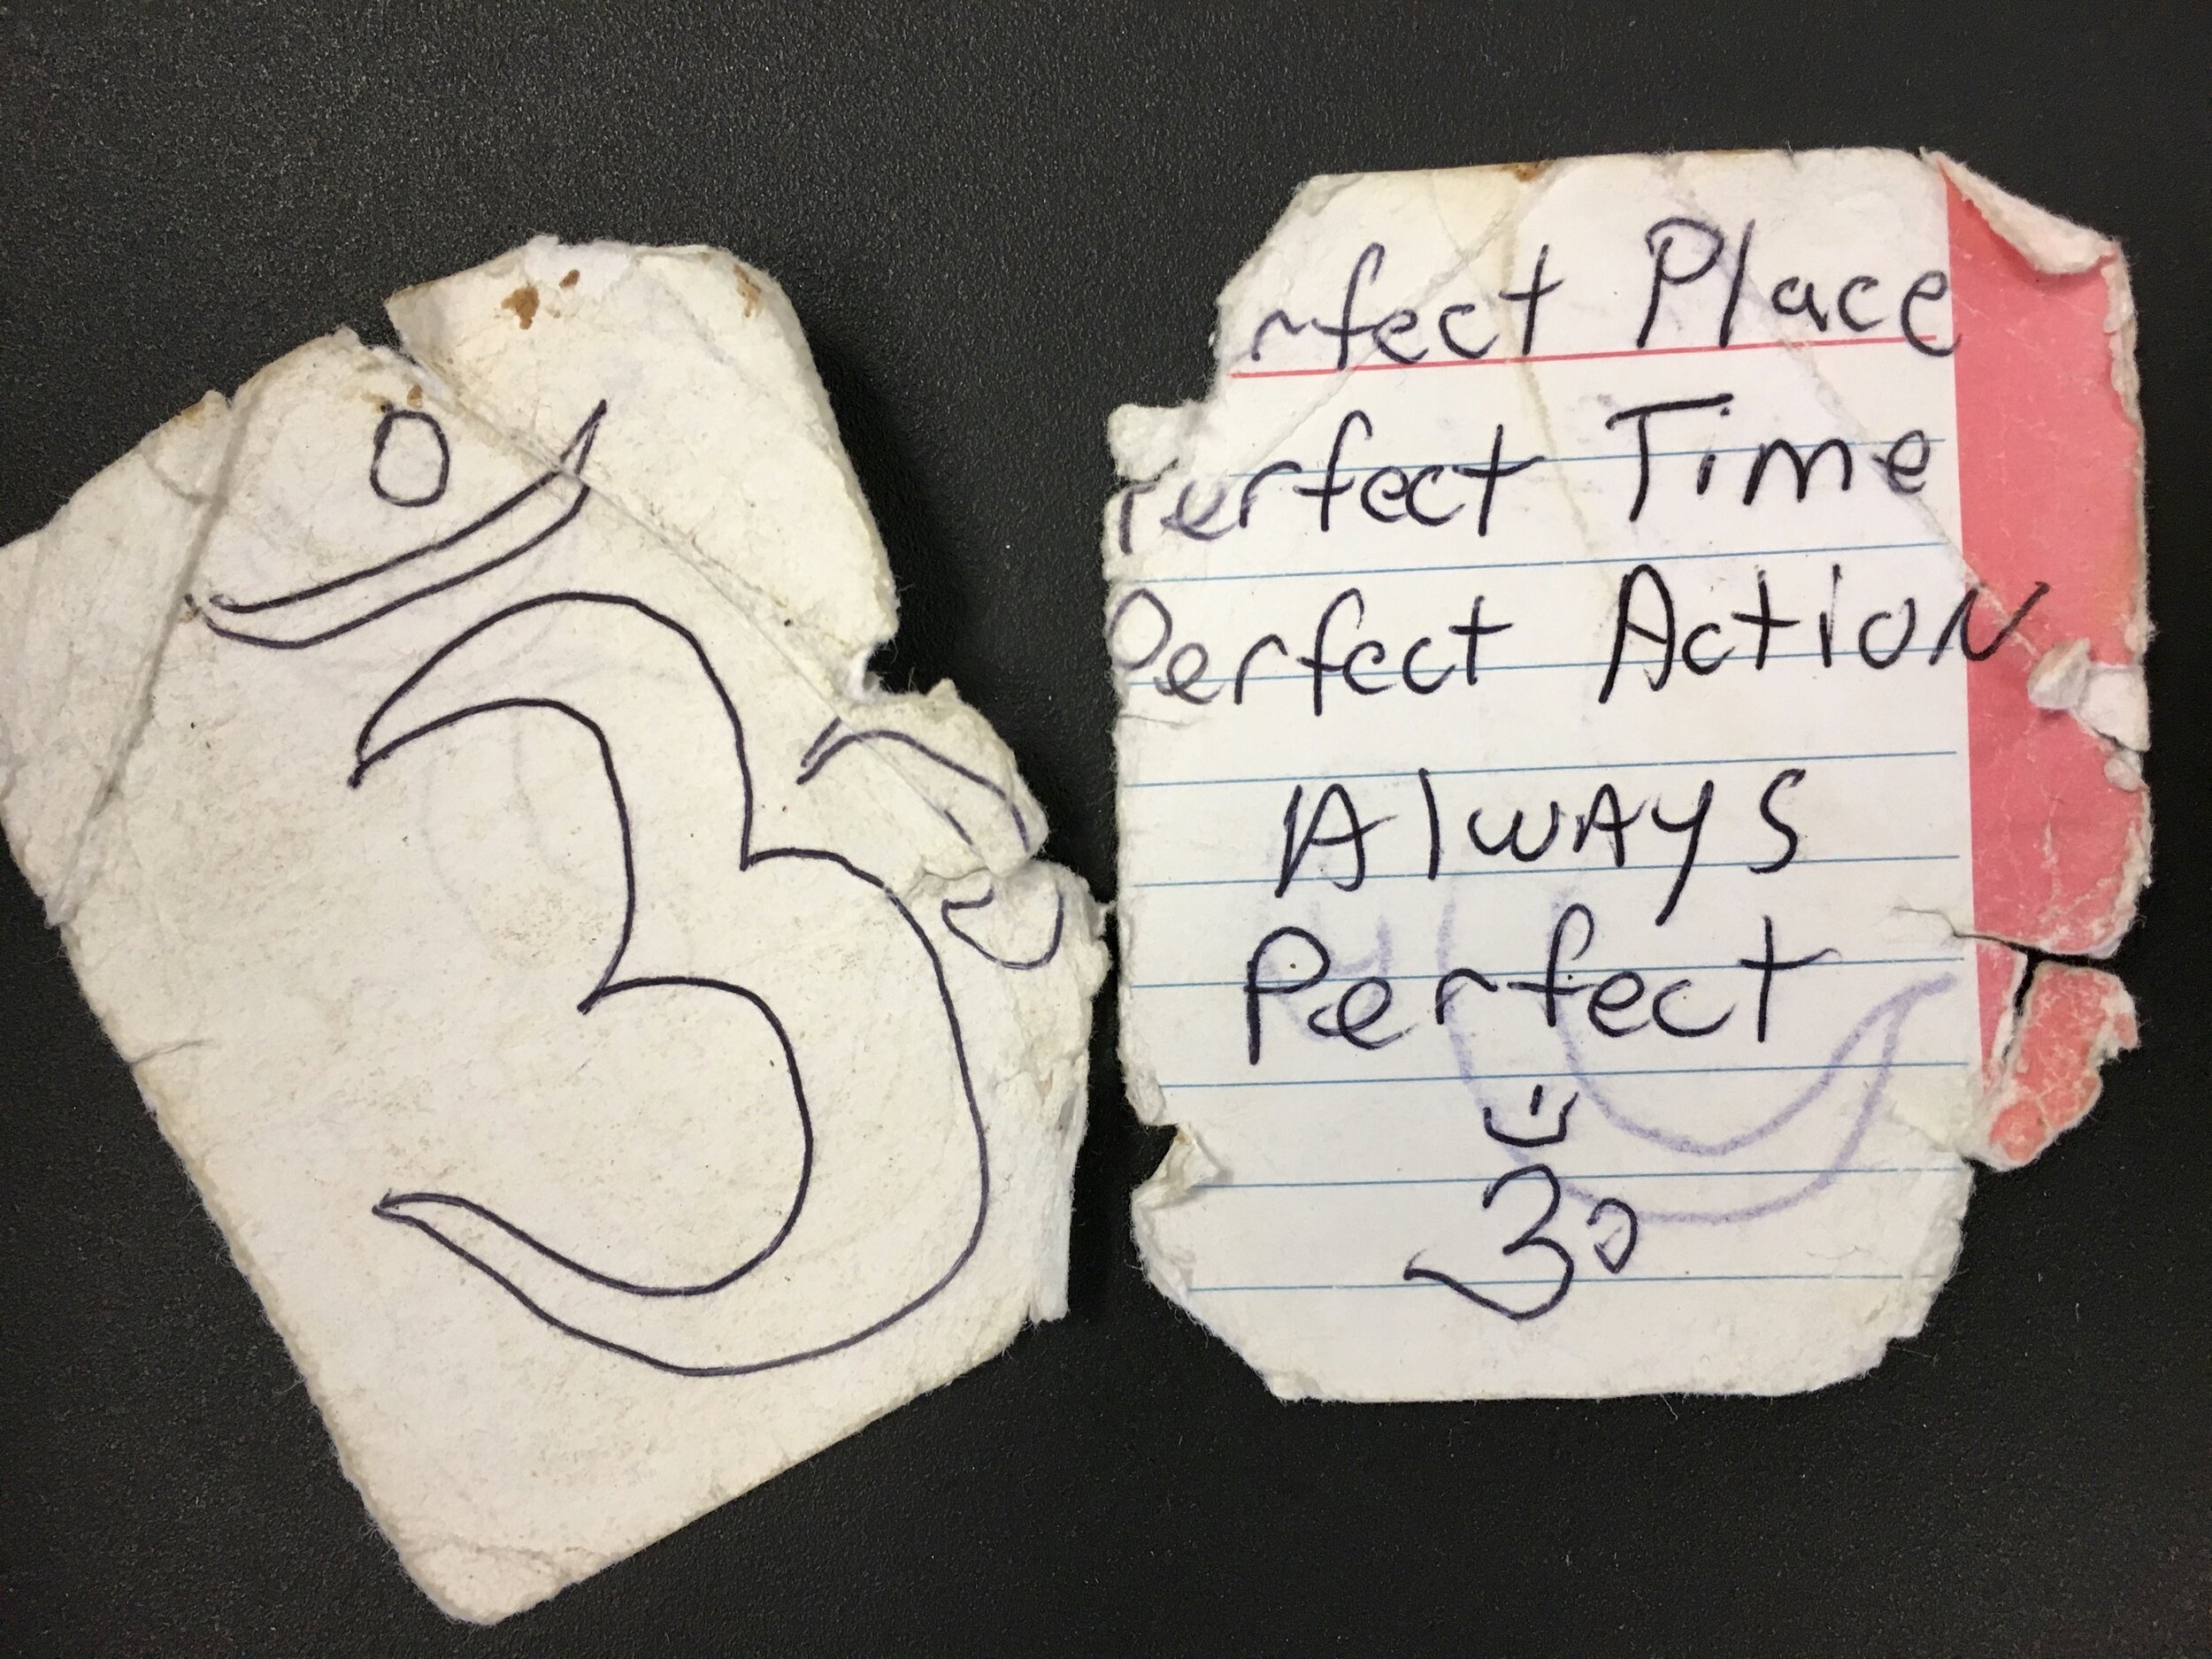 ॐ
rfect Place
Perfect Time
Perfect Action
Always
Perfect
ॐ